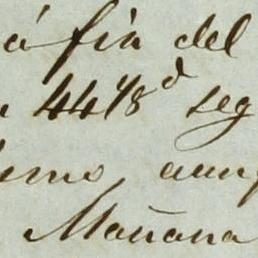 á fin del
44 1/8 d seg
aunq
Mañana